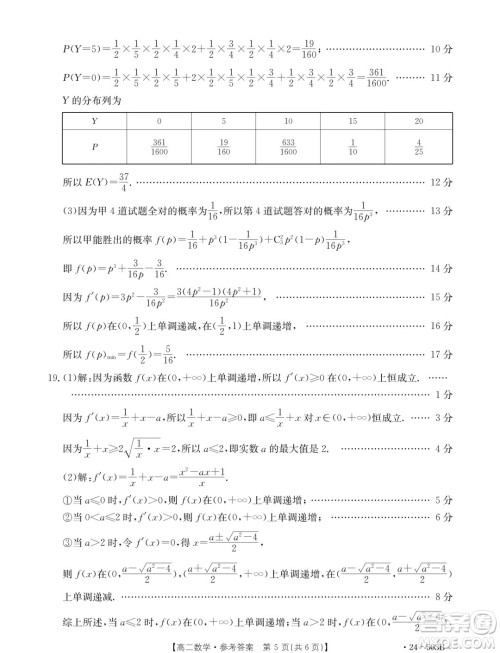 P(Y=5)=1/2×1/5×1/5×1/2×2+1/2×3/4×1/5×1/2×2=19/160; 10 分
P(Y=0)=1/2×1/5×1/5×1/2+2×1/2×1/5×1/2×3/4+1/2×3/4×1/2×3/4=361/1600. 11 分
Y 的分布列为
Y 0 5 10 15 20
P 361/1600 19/160 633/1600 1/10 4/25
所以 E(Y)=37/4. 12 分
(3)因为甲 4 道试题全对的概率为1/16,所以第 4 道试题答对的概率为1/(16p³). 13 分
所以甲能胜出的概率 f(p)=1/16+p³(1-1/(16p³))+C₃²p²(1-p)1/(16p³),
即 f(p)=p³+3/(16p)-3/16. 14 分
因为 f′(p)=3p²-3/(16p²)=3(4p²-1)(4p²+1)/(16p²),
所以 f(p)在(0,1/2)上单调递减,在(1/2,1)上单调递增, 16 分
所以 f(p)min=f(1/2)=5/16. 17 分
19. (1)解:因为函数 f(x)在(0,+∞)上单调递增,所以 f′(x)≥0 在(0,+∞)上恒成立.
1 分
因为 f′(x)=1/x+x-a,所以1/x+x-a≥0 在(0,+∞)上恒成立. 3 分
因为1/x+x≥2√(1/x·x)=2,所以 a≤2,即实数 a 的最大值是 2. 4 分
(2)解:f′(x)=1/x+x-a=(x²-ax+1)/x.
①当 a≤0 时,f′(x)>0,则 f(x)在(0,+∞)上单调递增; 5 分
②当 0<a≤2 时,f′(x)≥0,则 f(x)在(0,+∞)上单调递增; 6 分
③当 a>2 时,令 f′(x)=0,得 x=(a±√(a²-4))/2,
则 f(x)在(0,(a-√(a²-4))/2),((a+√(a²-4))/2,+∞)上单调递增,在((a-√(a²-4))/2,(a+√(a²-4))/2)
上单调递减. 8 分
综上,当 a≤2 时,f(x)在(0,+∞)上单调递增;当 a>2 时,f(x)在(0,
【高二数学·参考答案 第 5 页(共 6 页)】